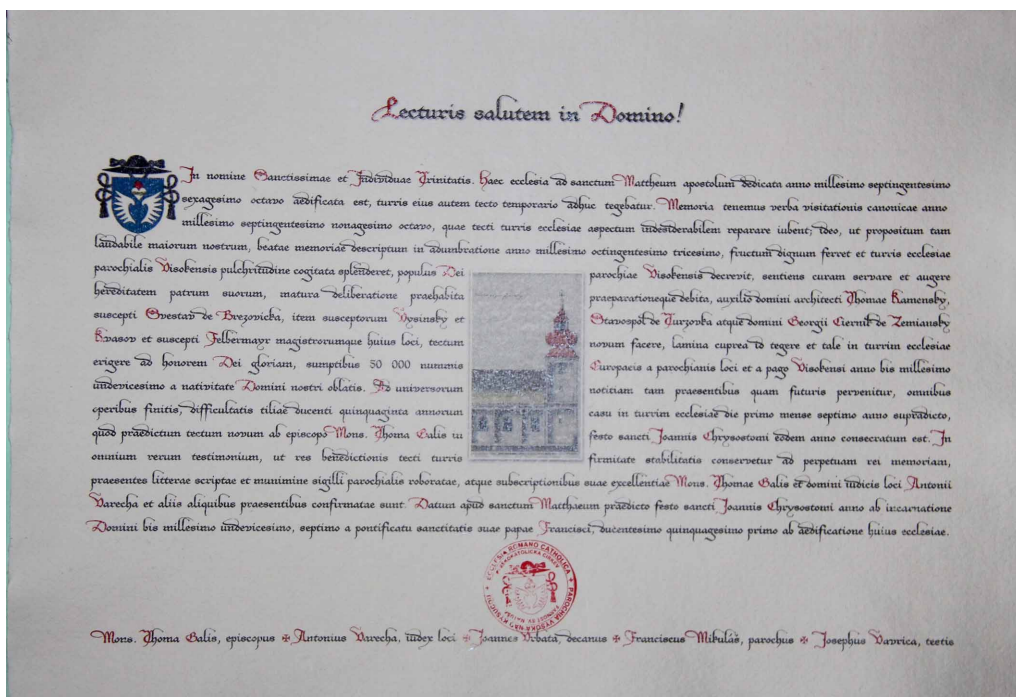 Lecturis salutem in Domino!
In nomine Sanctissimae et Individuae Trinitatis. Haec ecclesia ad sanctum Mattheum apostolum dedicata anno millesimo septingentesimo
sexagesimo octavo aedificata est, turris eius autem tecto temporario adhuc tegebatur. Memoria tenemus verba visitationis canonicae anno
millesimo septingentesimo nonagesimo octavo, quae tecti turris ecclesiae aspectum indesiderabilem reparare iubent; ideo, ut propositum tam
laudabile maiorum nostrum, beatae memoriae descriptum in adumbratione anno millesimo octingentesimo tricesimo, fructum dignum ferret et turris ecclesiae
parochialis Visokensis pulchritudine cogitata splenderet, populus Dei parochiae Visokensis decrevit, sentiens curam servare et augere
hereditatem patrum suorum, matura deliberatione praehabita praeparationeque debita, auxilio domini architecti Thomae Kamensky,
suscepti Svestav de Brezovicka, item susceptorum Vysinsky et Stavospol de Turzovka atque domini Georgii Ciernik de Zemiansky
Kvasov et suscepti Felbermayr magistrorumque huius loci, tectum novum facere, lamina cuprea id tegere et tale in turrim ecclesiae
erigere ad honorem Dei gloriam, sumptibus 50 000 nummis Europacis a parochianis loci et a pago Visokensi anno bis millesimo
undevicesimo a nativitate Domini nostri oblatis. Ad universorum notitiam tam praesentibus quam futuris pervenitur, omnibus
operibus finitis, difficultatis tiliae ducenti quinquaginta annorum casu in turrim ecclesiae die primo mense septimo anno supradicto,
quod praedictum tectum novum ab episcopo Mons. Thoma Galis in festo sancti Joannis Chrysostomi eodem anno consecratum est. In
omnium rerum testimonium, ut res benedictionis tecti turris firmitate stabilitatis conservetur ad perpetuam rei memoriam,
praesentes litterae scriptae et munimine sigilli parochialis roboratae, atque subscriptionibus suae excellentiae Mons. Thomae Galis et domini iudicis loci Antonii
Varecha et aliis aliquibus praesentibus confirmatae sunt. Datum apud sanctum Matthaeum praedicto festo sancti Joannis Chrysostomi anno ab incarnatione
Domini bis millesimo undevicesimo, septimo a pontificatu sanctitatis suae papae Francisci, ducentesimo quinquagesimo primo ab aedificatione huius ecclesiae.
ECCLESIA ROMANO CATHOLICA + PAROCHIA VYSOKÁ NAD KYSUCOU
Mons. Thoma Galis, episcopus ✠ Antonius Varecha, iudex loci ✠ Joannes Vrbata, decanus ✠ Franciscus Mikuláš, parochus ✠ Josephus Vavrica, testis